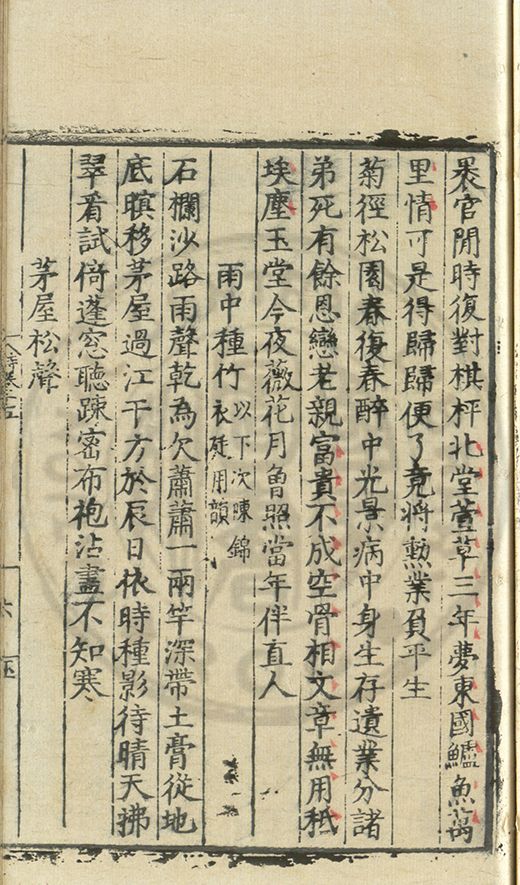 褁官閒時復對棋枰北堂萱草三年夢東國鱸魚萬
里情可是得歸歸便了竟將勲業負平生
菊徑松園春復春醉中光景病中身生存遺業分諸
弟死有餘恩戀老親富貴不成空骨相文章無用秪
埃塵玉堂今夜薇花月曾照當年伴直人
雨中種竹以下次陳錦
衣廷用韻
石欄沙路雨聲乾為欠蕭蕭一兩竿深帶土膏從地
底暝移茅屋過江干方於辰日依時種影待晴天拂
翠看試倚蓬窓聽踈密布袍沾盡不知寒
茅屋松聲
六